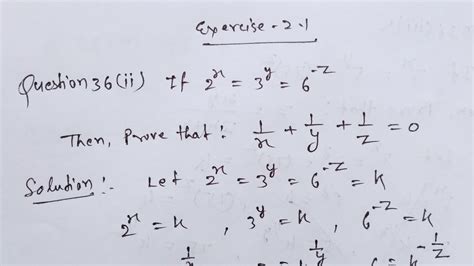 Exercise-2.1
Question 36(ii) If 2^x = 3^y = 6^-z
Then, Prove that: 1/x + 1/y + 1/z = 0
Solution:- Let 2^x = 3^y = 6^-z = k
2^x = k , 3^y = k , 6^-z = k